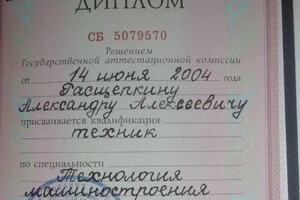 ДИПЛОМ
СБ 5079570
Решением
Государственной аттестационной комиссии
от 14 июня 2004 года
Расщепкину
Александру Алексеевичу
присваивается квалификация
техник
по специальности
Технология
машиностроения